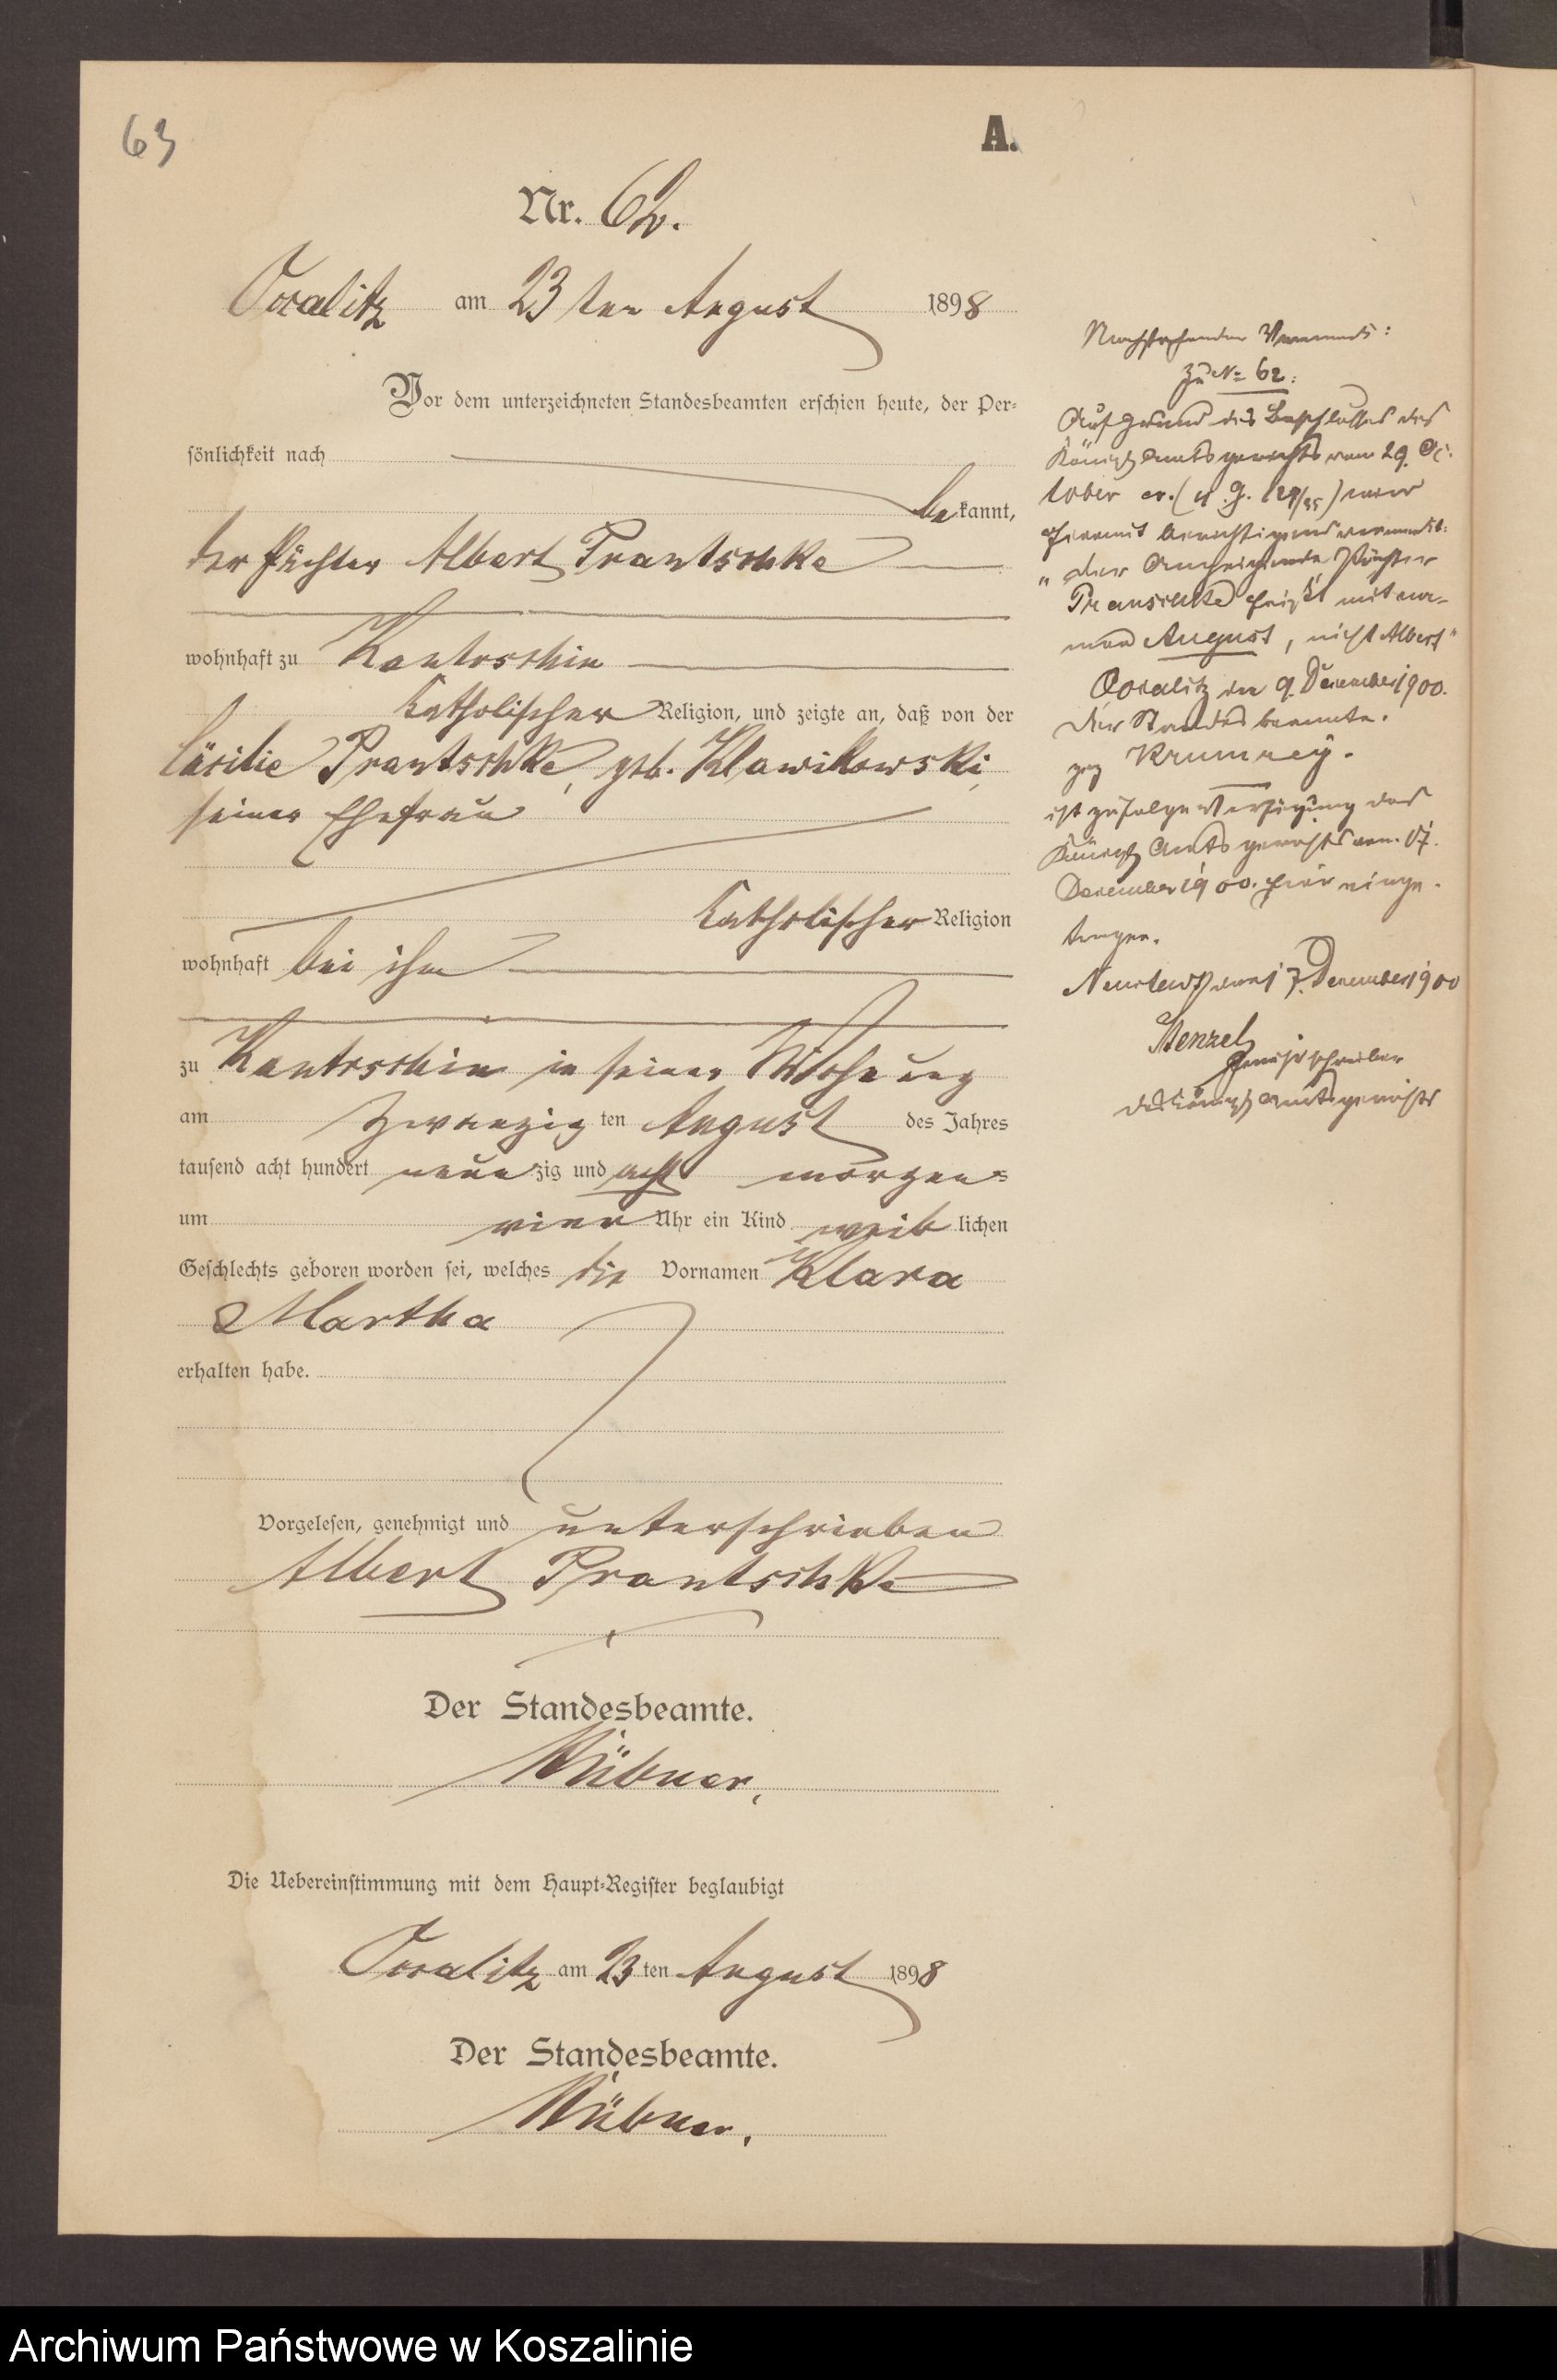 63
A.
Nr. 62.
am 23 ten August 1898
Vor dem unterzeichneten Standesbeamten erschien heute, der Per-
sönlichkeit nach
bekannt,
der Pächter Albert Prantschke
wohnhaft zu Kantrschin
katholischer Religion, und zeigte an, daß von der
Cäcilie Prantschke, geb. Klawikowski,
seiner Ehefrau
katholischer Religion
wohnhaft bei ihm
zu Kantrschin in seiner Wohnung
am zwanzig ten August des Jahres
tausend acht hundert neun zig und acht morgens
um vier Uhr ein Kind weib lichen
Geschlechts geboren worden sei, welches die Vornamen Klara
Martha
erhalten habe.
Vorgelesen, genehmigt und unterschrieben
Albert Prantschke
Der Standesbeamte.
Die Uebereinstimmung mit dem Haupt-Register beglaubigt
am 23 ten August 1898
Der Standesbeamte.
Nachstehender Vermerk:
Zu No 62:
Auf Grund des Beschlusses des
Königl. Amtsgerichts vom 29. Ok-
tober cr. wird
hiermit berichtigend vermerkt:
"der Anzeigende Pächter
Pranschke heißt mit Vor-
namen August, nicht Albert"
den 9. Dezember 1900.
Der Standesbeamte.
gez Krummrey.
ist zufolge Verfügung des
Königl. Amtsgerichts vom 17.
Dezember 1900. hier einge-
tragen.
den 17. Dezember 1900
Menzel
Gerichtsschreiber
des Königl. Amtsgerichts
Archiwum Państwowe w Koszalinie